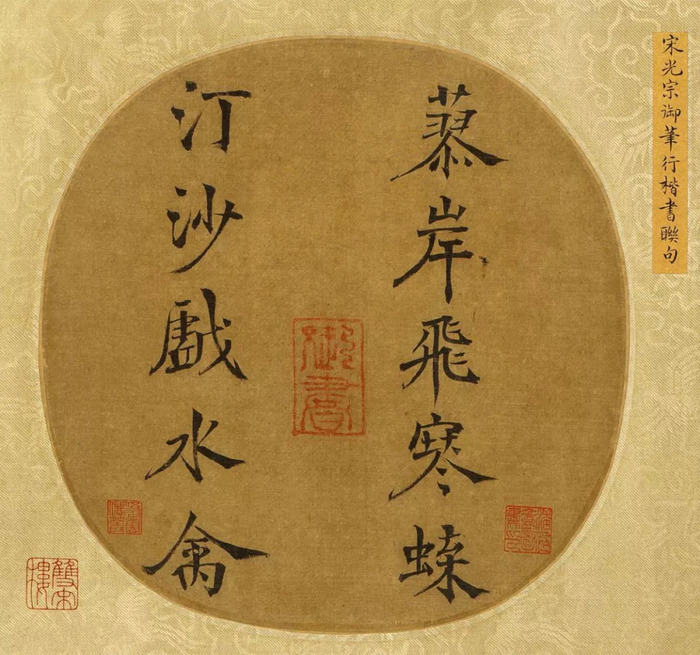 宋光宗御筆行楷書聯句
蓼岸飛寒蝶
汀沙戱水禽
御書
雙宋樓